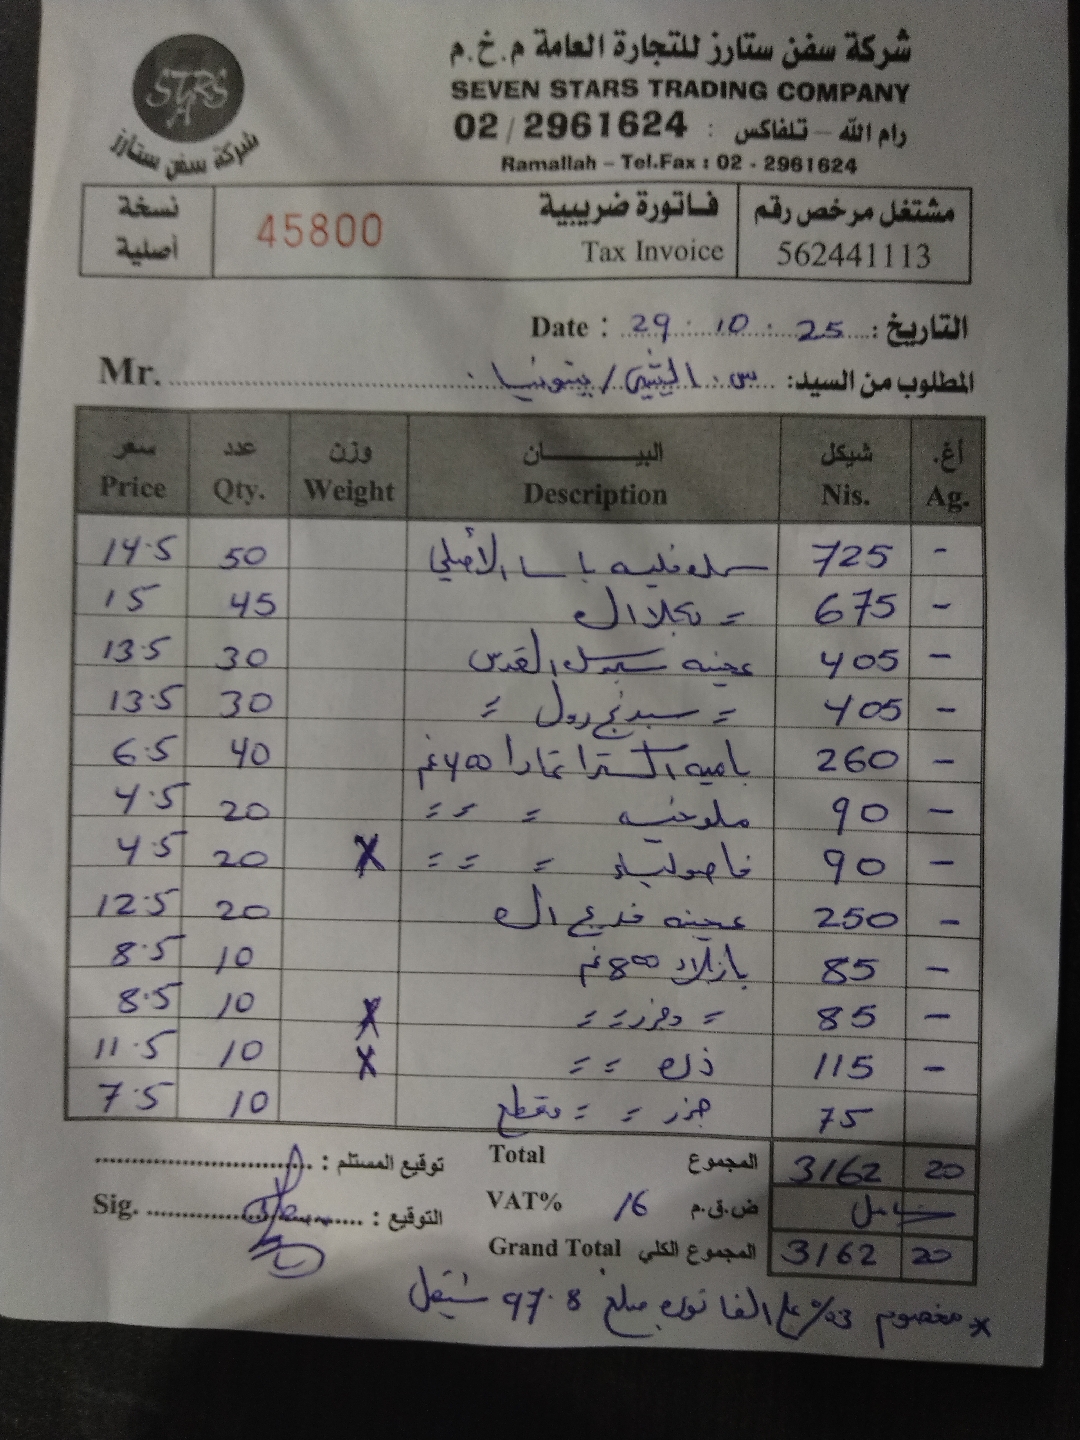 شركة سفن ستارز للتجارة العامة م.خ.م
SEVEN STARS TRADING COMPANY
رام الله - تلفاكس : 02 / 2961624
Ramallah - Tel.Fax : 02 - 2961624
STRS
شركة سفن ستارز
مشتغل مرخص رقم 562441113
فاتورة ضريبية
Tax Invoice
45800
نسخة أصلية
التاريخ : Date : 29 . 10 . 25
المطلوب من السيد: بيتونيا Mr.
أغ. شيكل البيـــان وزن عدد سعر
Ag. Nis. Description Weight Qty. Price
- 725 الأصلي 50 14.5
- 675 = 45 15
- 405 عجينة القدس 30 13.5
- 405 = رول = 30 13.5
- 260 بامية اكسترا 400غم 40 6.5
- 90 ملوخية = = = 20 4.5
- 90 فاصولياء = = = X 20 4.5
- 250 عجينة 20 12.5
- 85 بازيلاء 800غم 10 8.5
- 85 = وجزر = = X 10 8.5
- 115 ذرة = = X 10 11.5
75 جزر = = مقطع 10 7.5
المجموع Total 3162 20
ض.ق.م 16 VAT% شامل
المجموع الكلي Grand Total 3162 20
توقيع المستلم :
التوقيع : Sig.
* مخصوم 03% على الفاتورة مبلغ 97.8 شيقل